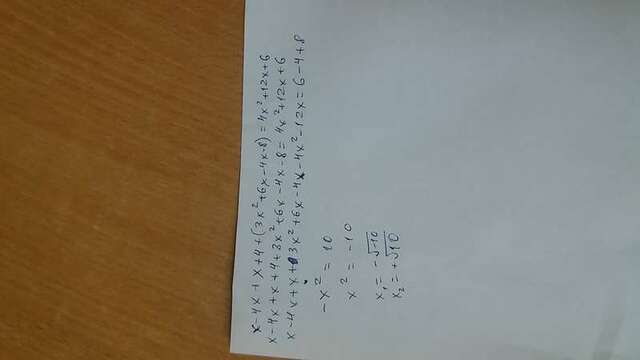 x-4x+x+4+(3x²+6x-4x-8)=4x²+12x+6
x-4x+x+4+3x²+6x-4x-8=4x²+12x+6
x-4x+x+3x²+6x-4x-4x²-12x=6-4+8
-x²=10
x²=-10
x₁=-√-10
x₂=+√10